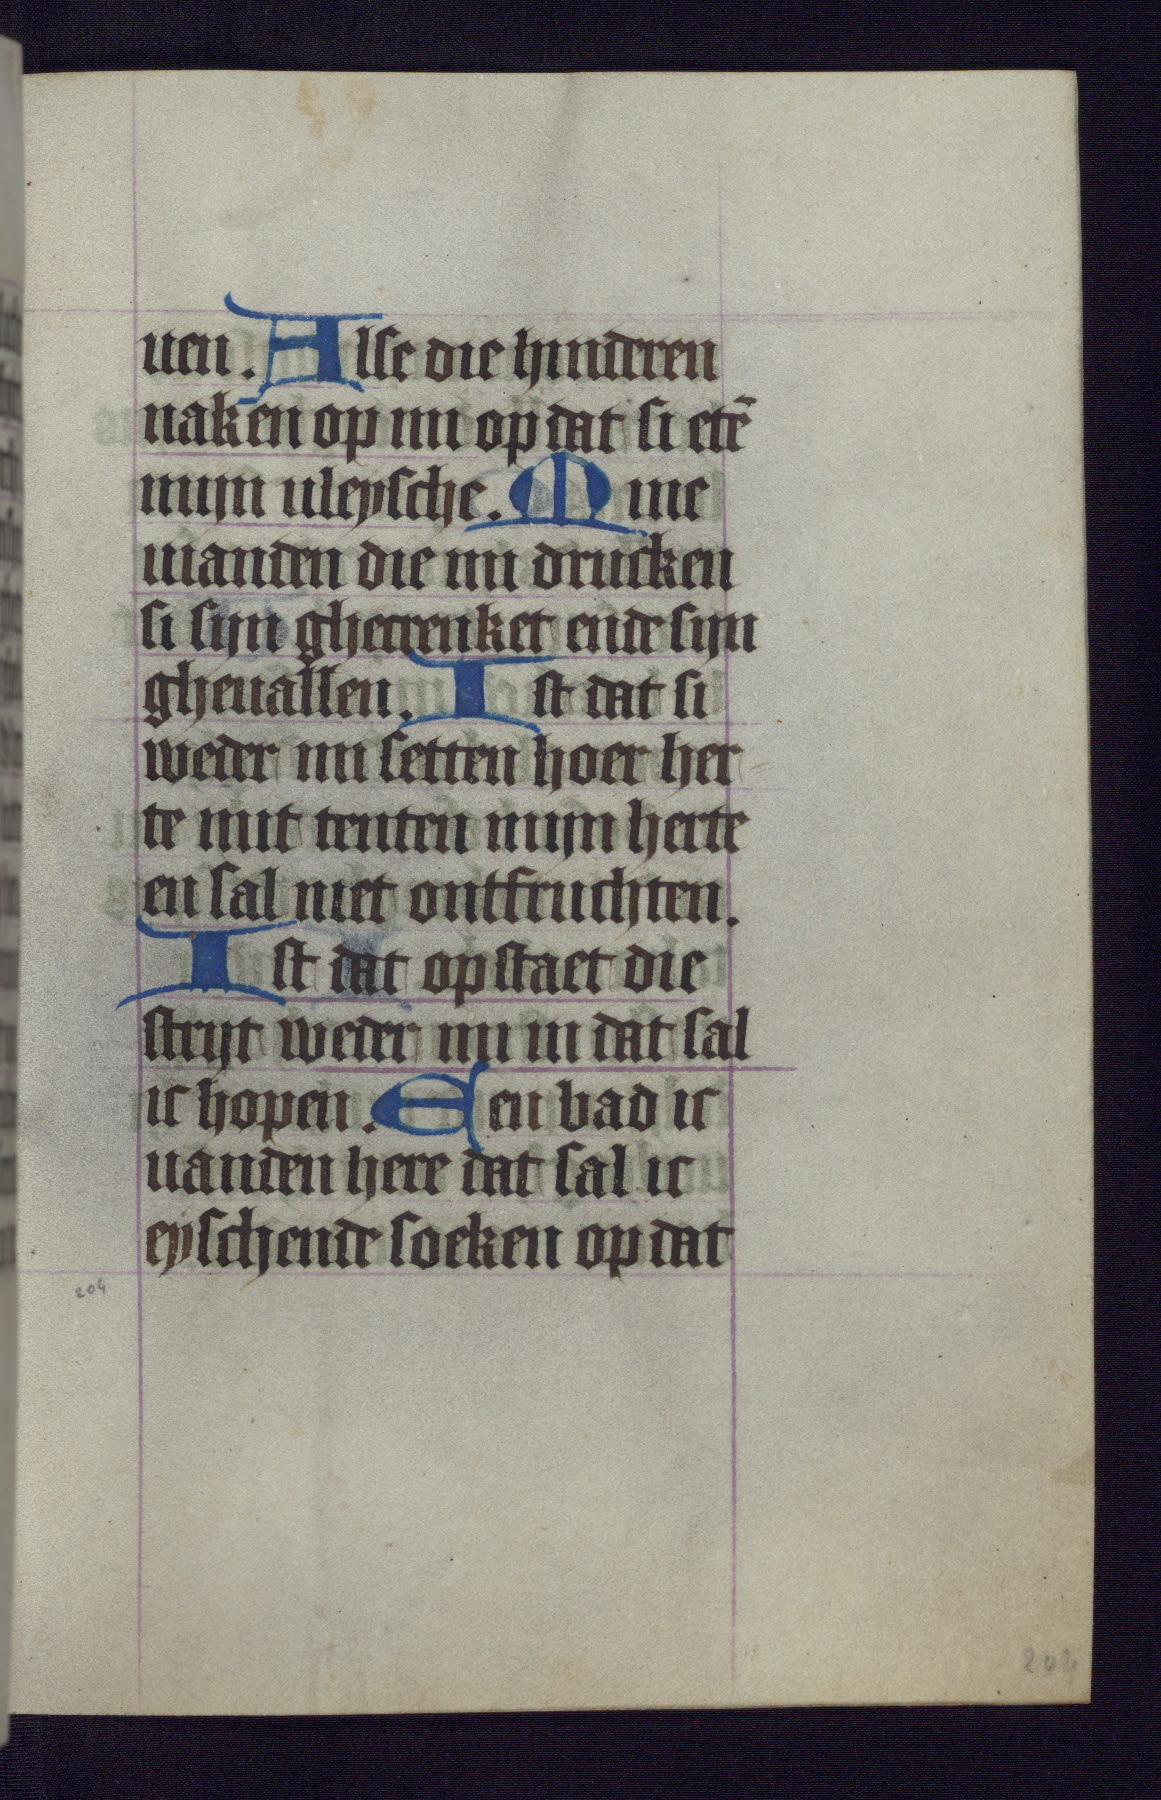 uen. Alse die hinderen
naken op mi op dat si etē
mijn uleysche. Mine
uianden die mi drucken
si sijn ghecrenket ende sijn
gheuallen. Ist dat si
weder mi setten hoer her
te mit tenten mijn herte
en sal niet ontfruchten.
Ist dat op staet die
strijt weder mi in dat sal
ic hopen. Een bad ic
uanden here dat sal ic
eyschende soeken op dat
204
204